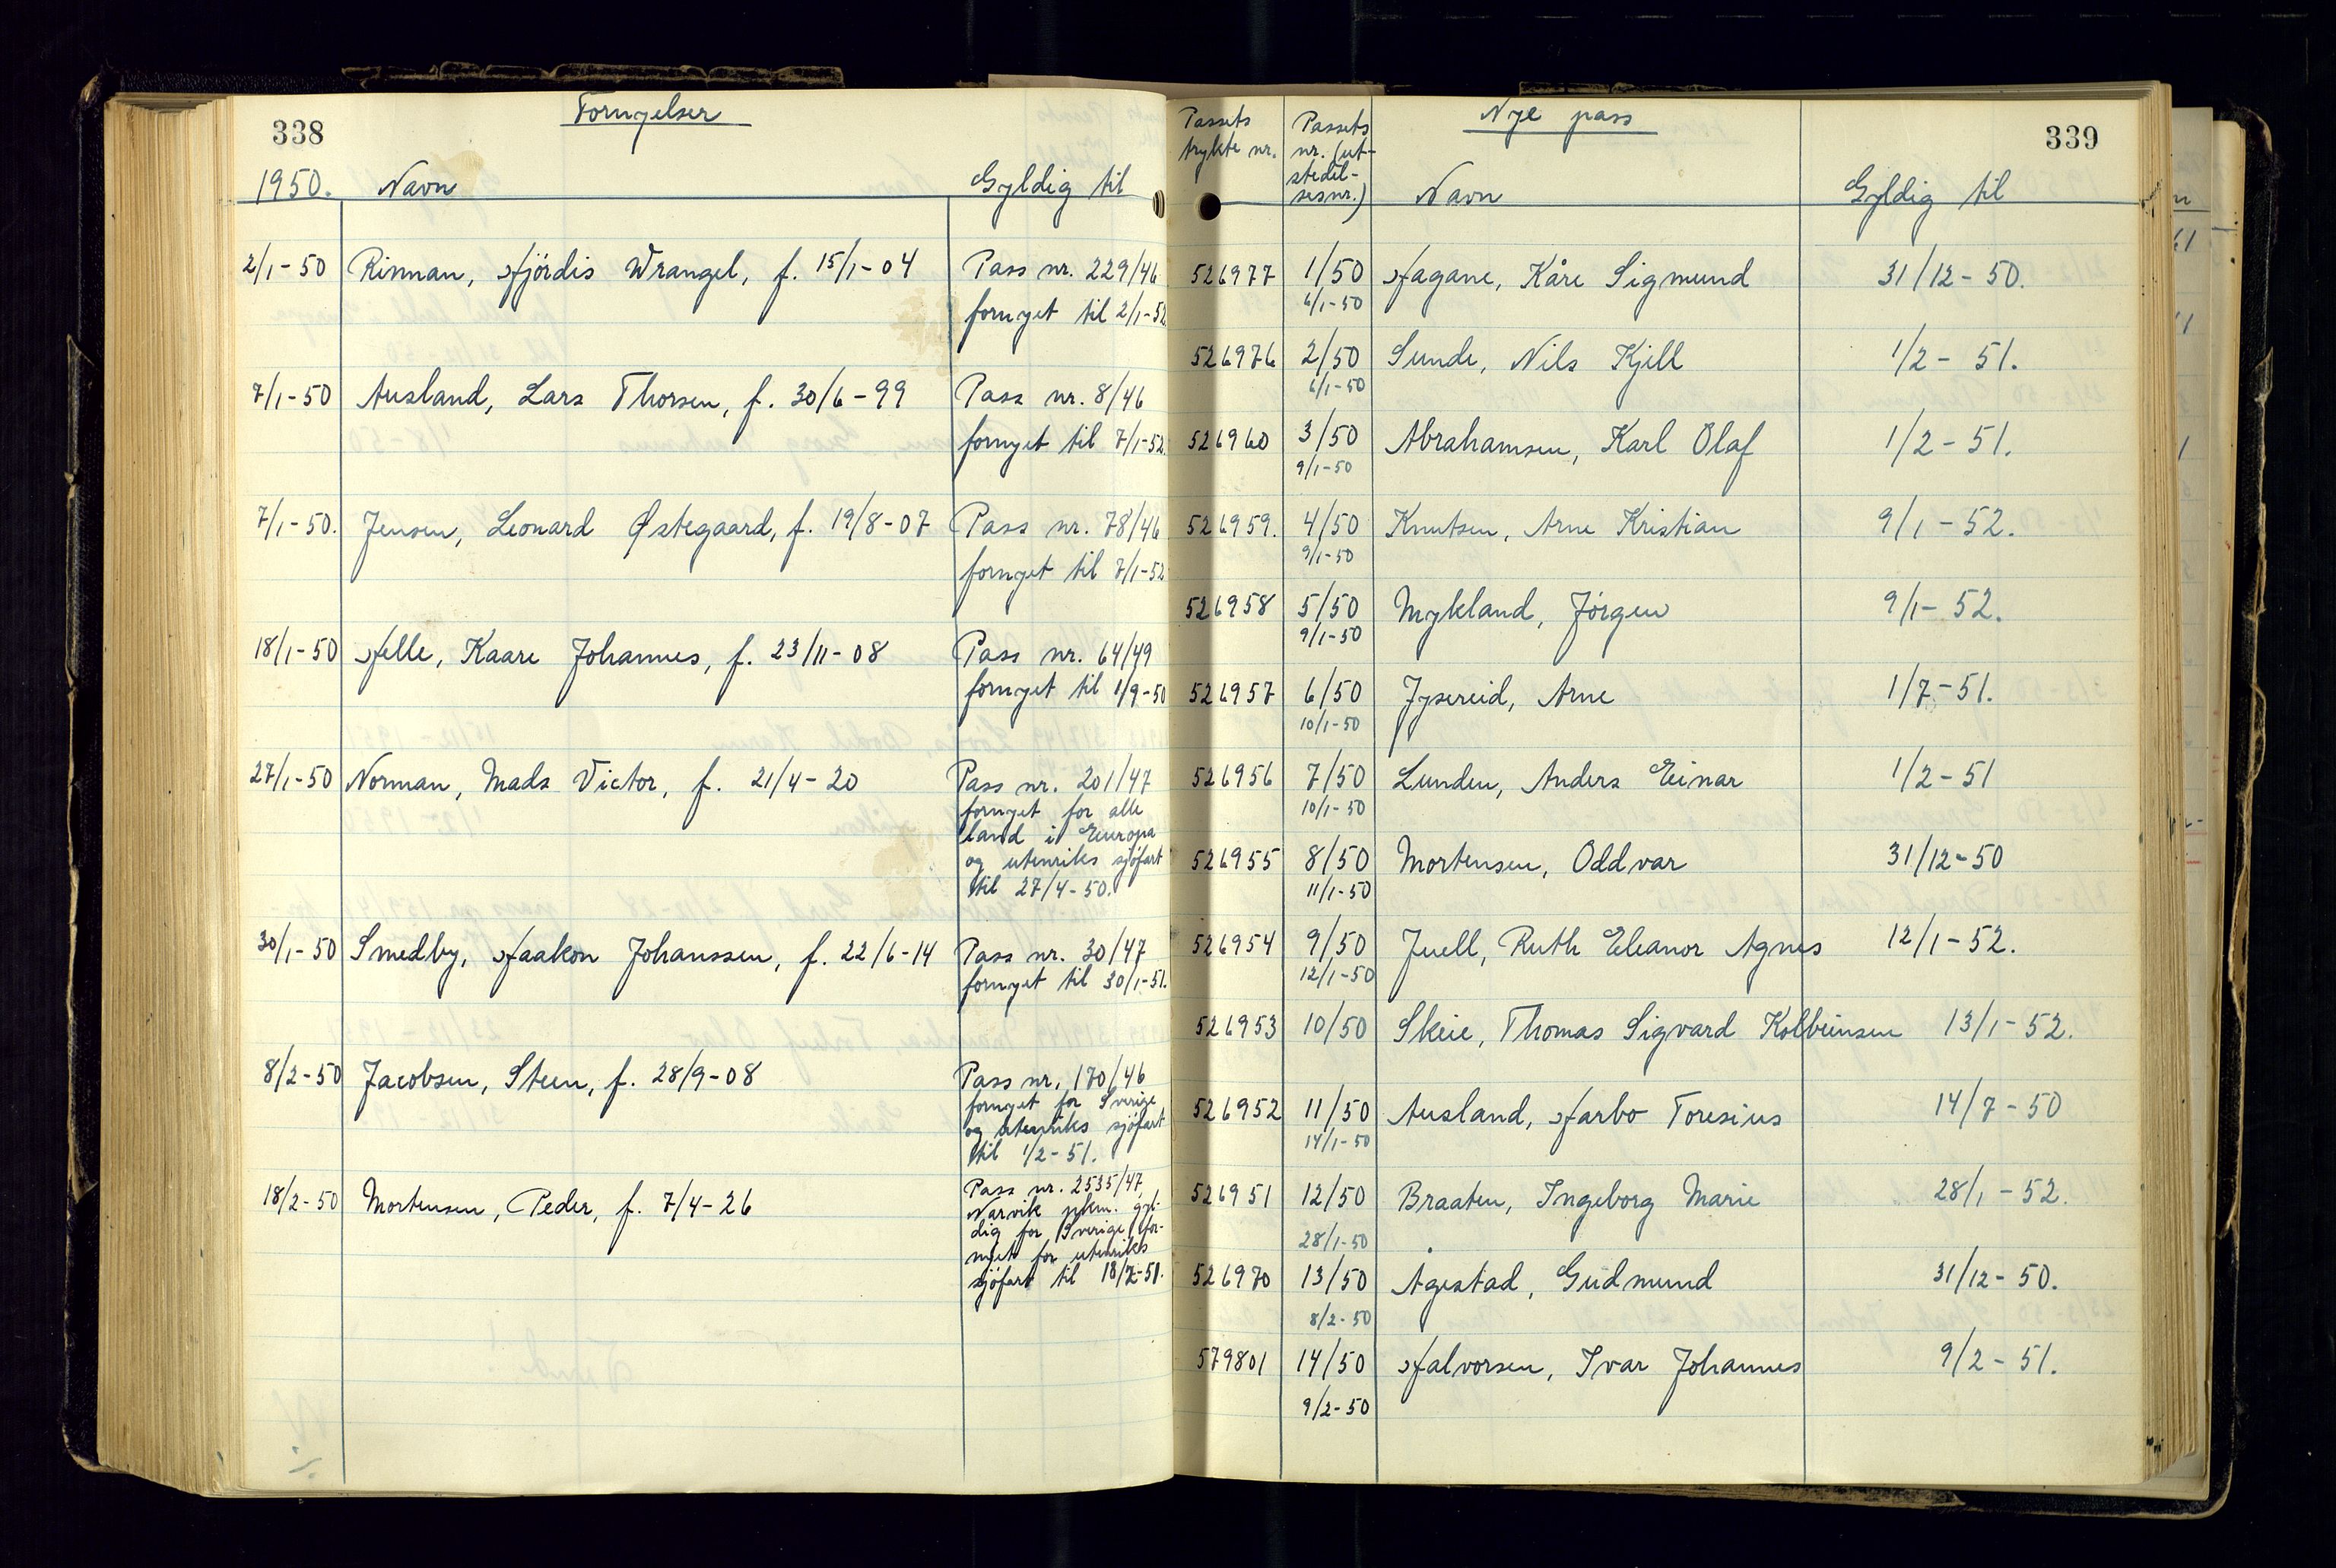 338
Fornyelser
1950. Navn Gyldig til
2/1-50 Rinman, Hjördis Wrangel, f. 15/1-04 Pass nr. 229/46
fornyet til 2/1-52
7/1-50 Ausland, Lars Thorsen, f. 30/6-99 Pass nr. 8/46
fornyet til 7/1-52.
7/1-50. Jensen, Leonard Østegaard, f. 19/8-07 Pass nr. 78/46
fornyet til 7/1-52
18/1-50 Helle, Kaare Johannes, f. 23/11-08 Pass nr. 64/49
fornyet til 1/9-50
27/1-50 Norman, Mads Victor, f. 21/4-20 Pass nr. 201/47
fornyet for alle
land i Europa
og utenriks sjöfart
til 27/4-50.
30/1-50 Smedby, Haakon Johanssen, f. 22/6-14 Pass nr. 30/47
fornyet til 30/1-51.
8/2-50 Jacobsen, Steen, f. 28/9-08 Pass nr. 170/46
fornyet for Sverige
og utenriks sjöfart
til 1/2-51.
18/2-50 Mortensen, Peder, f. 7/4-26 Pass nr. 2535/47,
Narvik pkm. gyl-
dig for Sverige, for-
nyet for utenriks
sjöfart til 18/2-51.
339
Nye pass
Passets
trykte nr.
Passets
nr. (ut-
stedel-
sesnr.)
Navn Gyldig til
526977 1/50 Hagane, Kåre Sigmund 31/12-50.
6/1-50
526976 2/50 Sunde, Nils Kjell 1/2-51.
6/1-50
526960 3/50 Abrahamsen, Karl Olaf 1/2-51.
9/1-50
526959. 4/50 Knutsen, Arne Kristian 9/1-52.
9/1-50
526958 5/50 Mykland, Jörgen 9/1-52.
9/1-50
526957 6/50 Jysereid, Arne 1/7-51.
10/1-50
526956 7/50 Lunden, Anders Einar 1/2-51
10/1-50
526955 8/50 Mortensen, Oddvar 31/12-50
11/1-50
526954 9/50 Juell, Ruth Eleanor Agnes 12/1-52.
12/1-50
526953 10/50 Skeie, Thomas Sigvard Kolbeinsen 13/1-52.
526952 11/50 Ausland, Harbo Toresius 14/7-50
14/1-50
526951 12/50 Braaten, Ingeborg Marie 28/1-52.
28/1-50
526970 13/50 Ågestad, Gudmund 31/12-50.
8/2-50
579801 14/50 Halvorsen, Ivar Johannes 9/2-51.
9/2-50